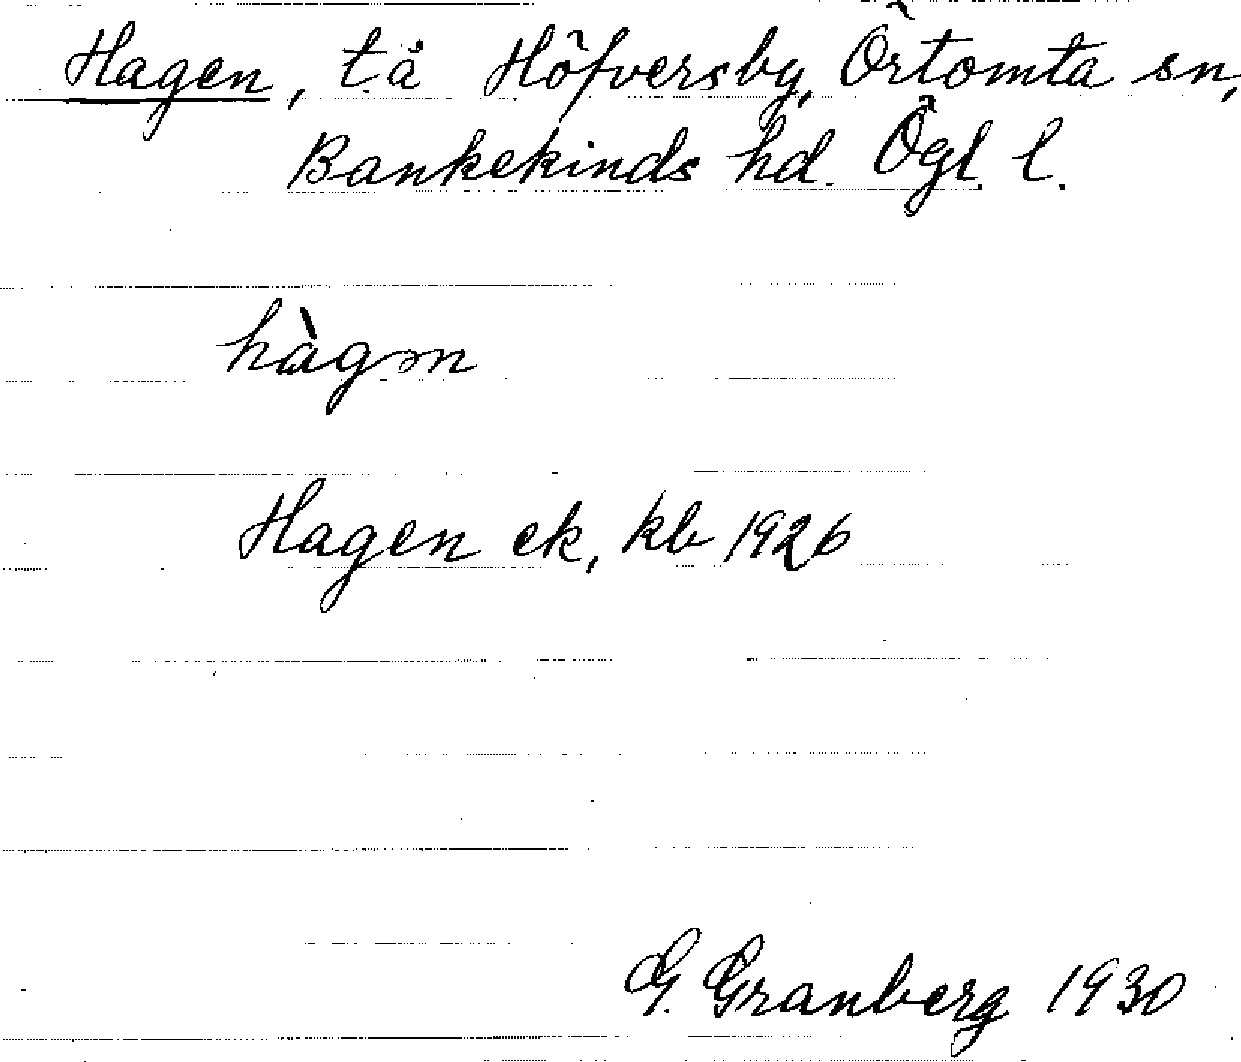 Hagen, t.å Höfversby, Örtomta sn,
Bankekinds hd. Ögl. l.
hàgɔn
Hagen ek, kb 1926
G. Granberg 1930